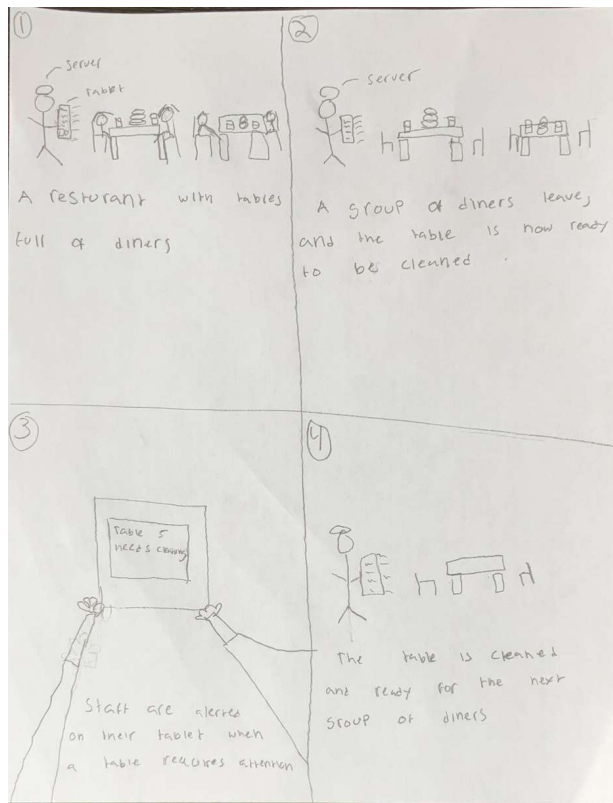 1
server
tablet
A resturant with tables
full of diners
2
server
A group of diners leave,
and the table is now ready
to be cleaned.
3
Table 5
needs cleaning
Staff are alerted
on their tablet when
a table requires attention
4
The table is cleaned
and ready for the next
group of diners